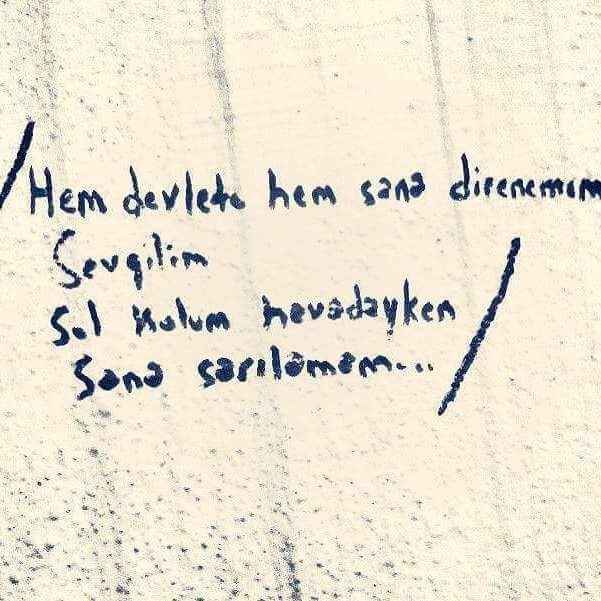 /Hem devlete hem sana direnemem
Sevgilim
Sol kolum havadayken
Sana sarılamam.../